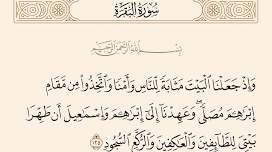 سُورَةُ البَقَرَةِ
بِسْمِ اللَّهِ الرَّحْمَٰنِ الرَّحِيمِ
وَإِذْ جَعَلْنَا ٱلْبَيْتَ مَثَابَةً لِّلنَّاسِ وَأَمْنًا وَٱتَّخِذُوا۟ مِن مَّقَامِ
إِبْرَٰهِـۧمَ مُصَلًّى ۖ وَعَهِدْنَآ إِلَىٰٓ إِبْرَٰهِـۧمَ وَإِسْمَٰعِيلَ أَن طَهِّرَا
بَيْتِىَ لِلطَّآئِفِينَ وَٱلْعَٰكِفِينَ وَٱلرُّكَّعِ ٱلسُّجُودِ ١٢٥